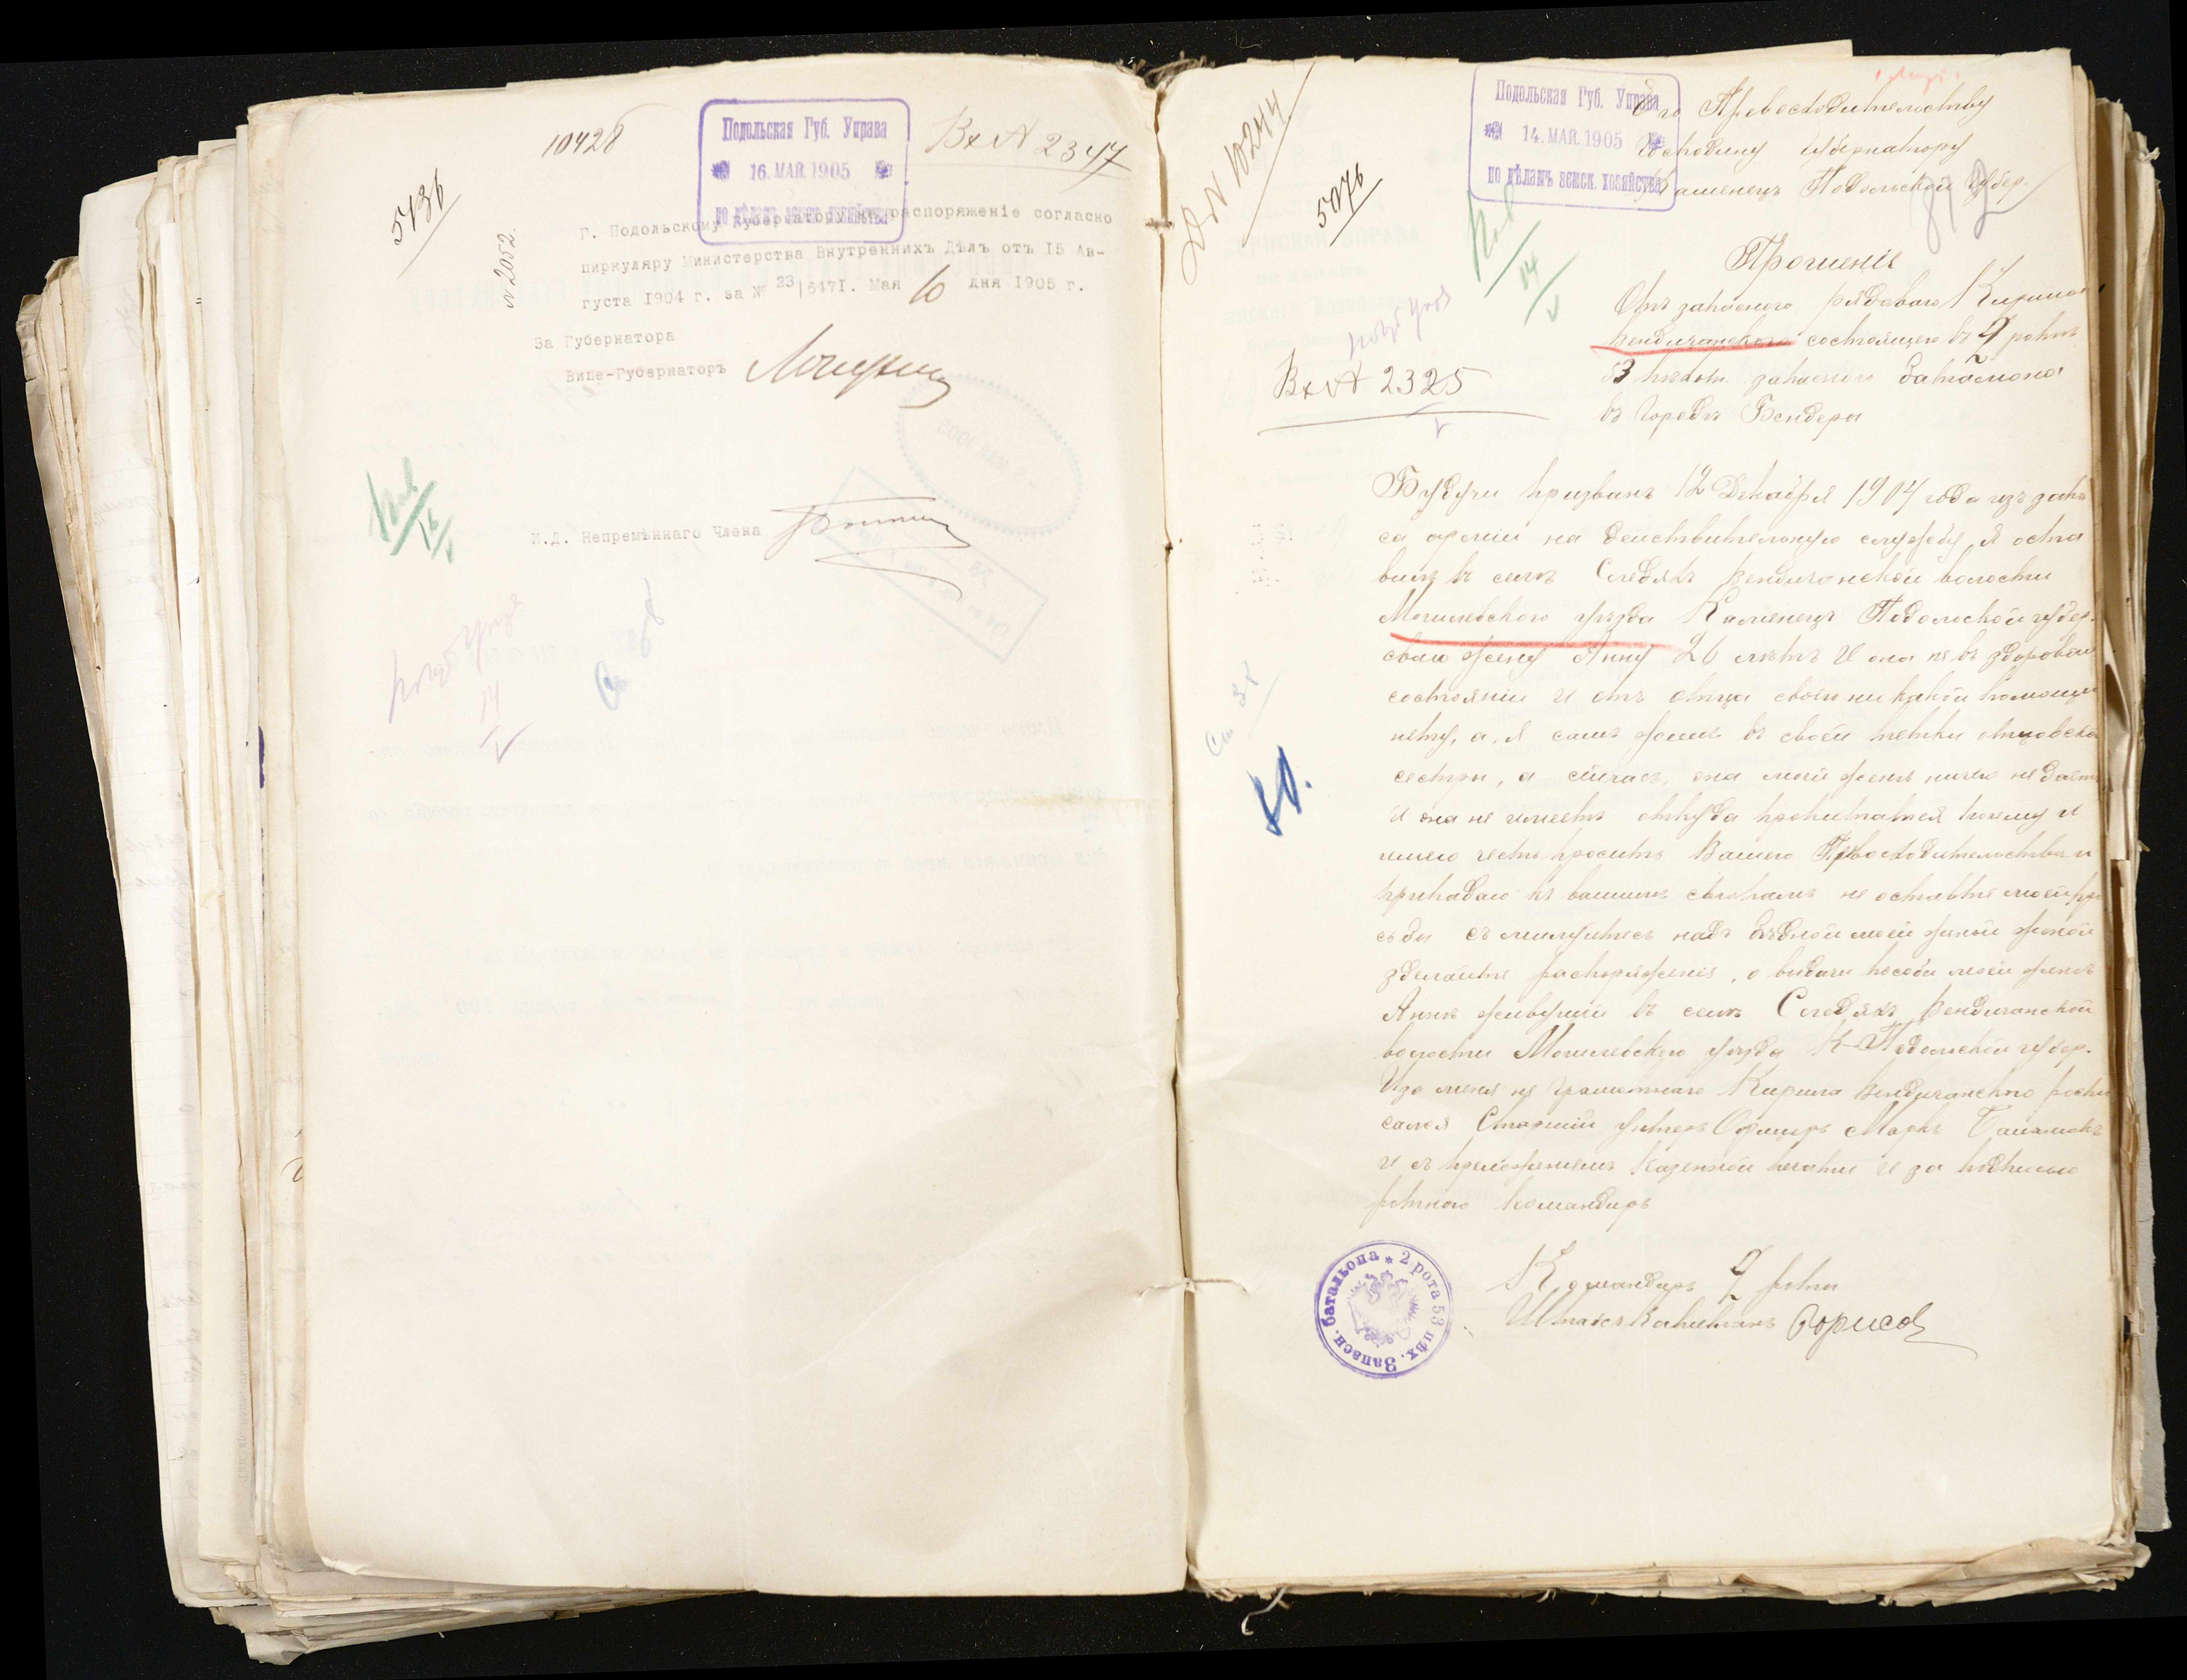 10428
5136
№ 2052.
Подольская Губ. Управа
16. МАЯ. 1905
по дѣламъ земск. хозяйства
Вх № 2347
Г. Подольскому Губернатору на распоряженіе согласно
циркуляру Министерства Внутреннихъ Дѣлъ отъ 15 Ав-
густа 1904 г. за № 23/6471. Мая 10 дня 1905 г.
За Губернатора
Вице-Губернаторъ
И.Д. Непремѣннаго Члена
14
V
№ 10244
5076
Подольская Губ. Управа
14. МАЯ. 1905
по дѣламъ земск. хозяйства
Его Превосходительству
Господину Губернатору
Каменецъ Подольской губер.
Вх № 2325
Прошеніе
Отъ запасного рядоваго Кирила
Вендичанскаго состоящего въ 2 роте
53 пѣхотн. запасного баталиона
въ городѣ Бендеры
Будучи призванъ 12 Декабря 1904 года изъ запа
са армии на действительную службу, я оста
вилъ въ селѣ Следяхъ Вендичанской волости
Могилевского уѣзда Каменецъ Подольской губер.
свою жену Анну 26 лѣтъ и она не въ здоровом
состоянии и отъ отца своего никакой помощи
нету, а, я самъ жилъ въ своей тетки отцовска
сестры, а сичасъ, она моей женѣ ничего не даетъ
и она не имеетъ откуда пропитатся почему и
имею честь просить Вашего Превосходительства и
припадаю къ вашимъ стопамъ не оставте моей про
сьбы съ милуйтесь надъ бѣдной моей женой
зделайте распоряжения, о выдачи пособи моей женѣ
Аннѣ живущий въ селѣ Следяхъ Вендичанской
волости Могилевского уѣзда К-Подольской губер.
Изо меня не грамотнаго Кирила Вендичанского роспи
салса Старший Унтеръ Офицеръ Маркъ
и съ преложениемъ Казенной печати и за подписью
ротного командира
Командиръ 2 роты
Штабсъ Капитанъ Борисов
2 рота 53 пѣх. Запасн. баталъона